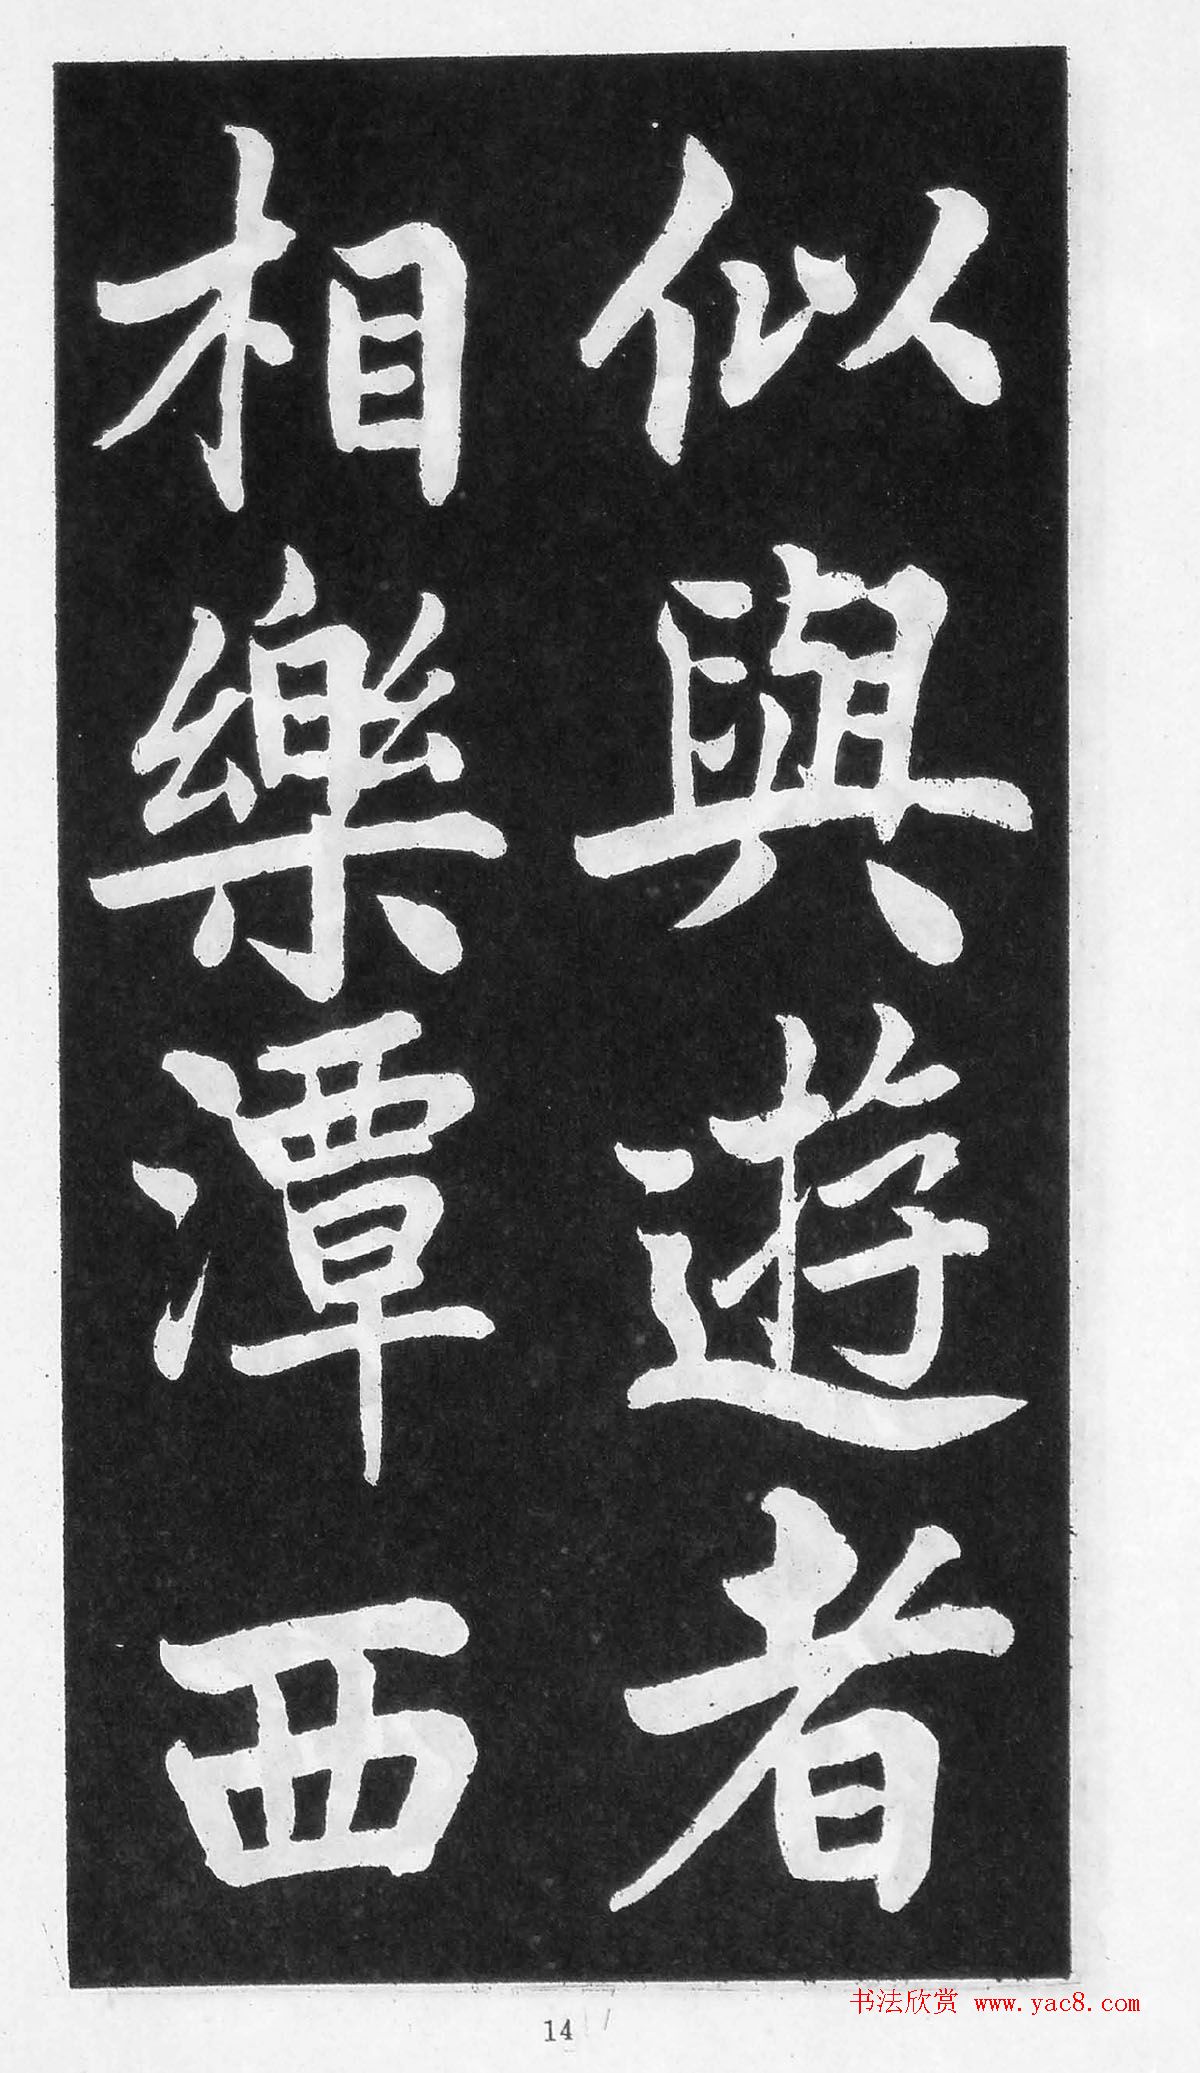 似與遊者
相樂潭西
书法欣赏 www.yac8.com
14